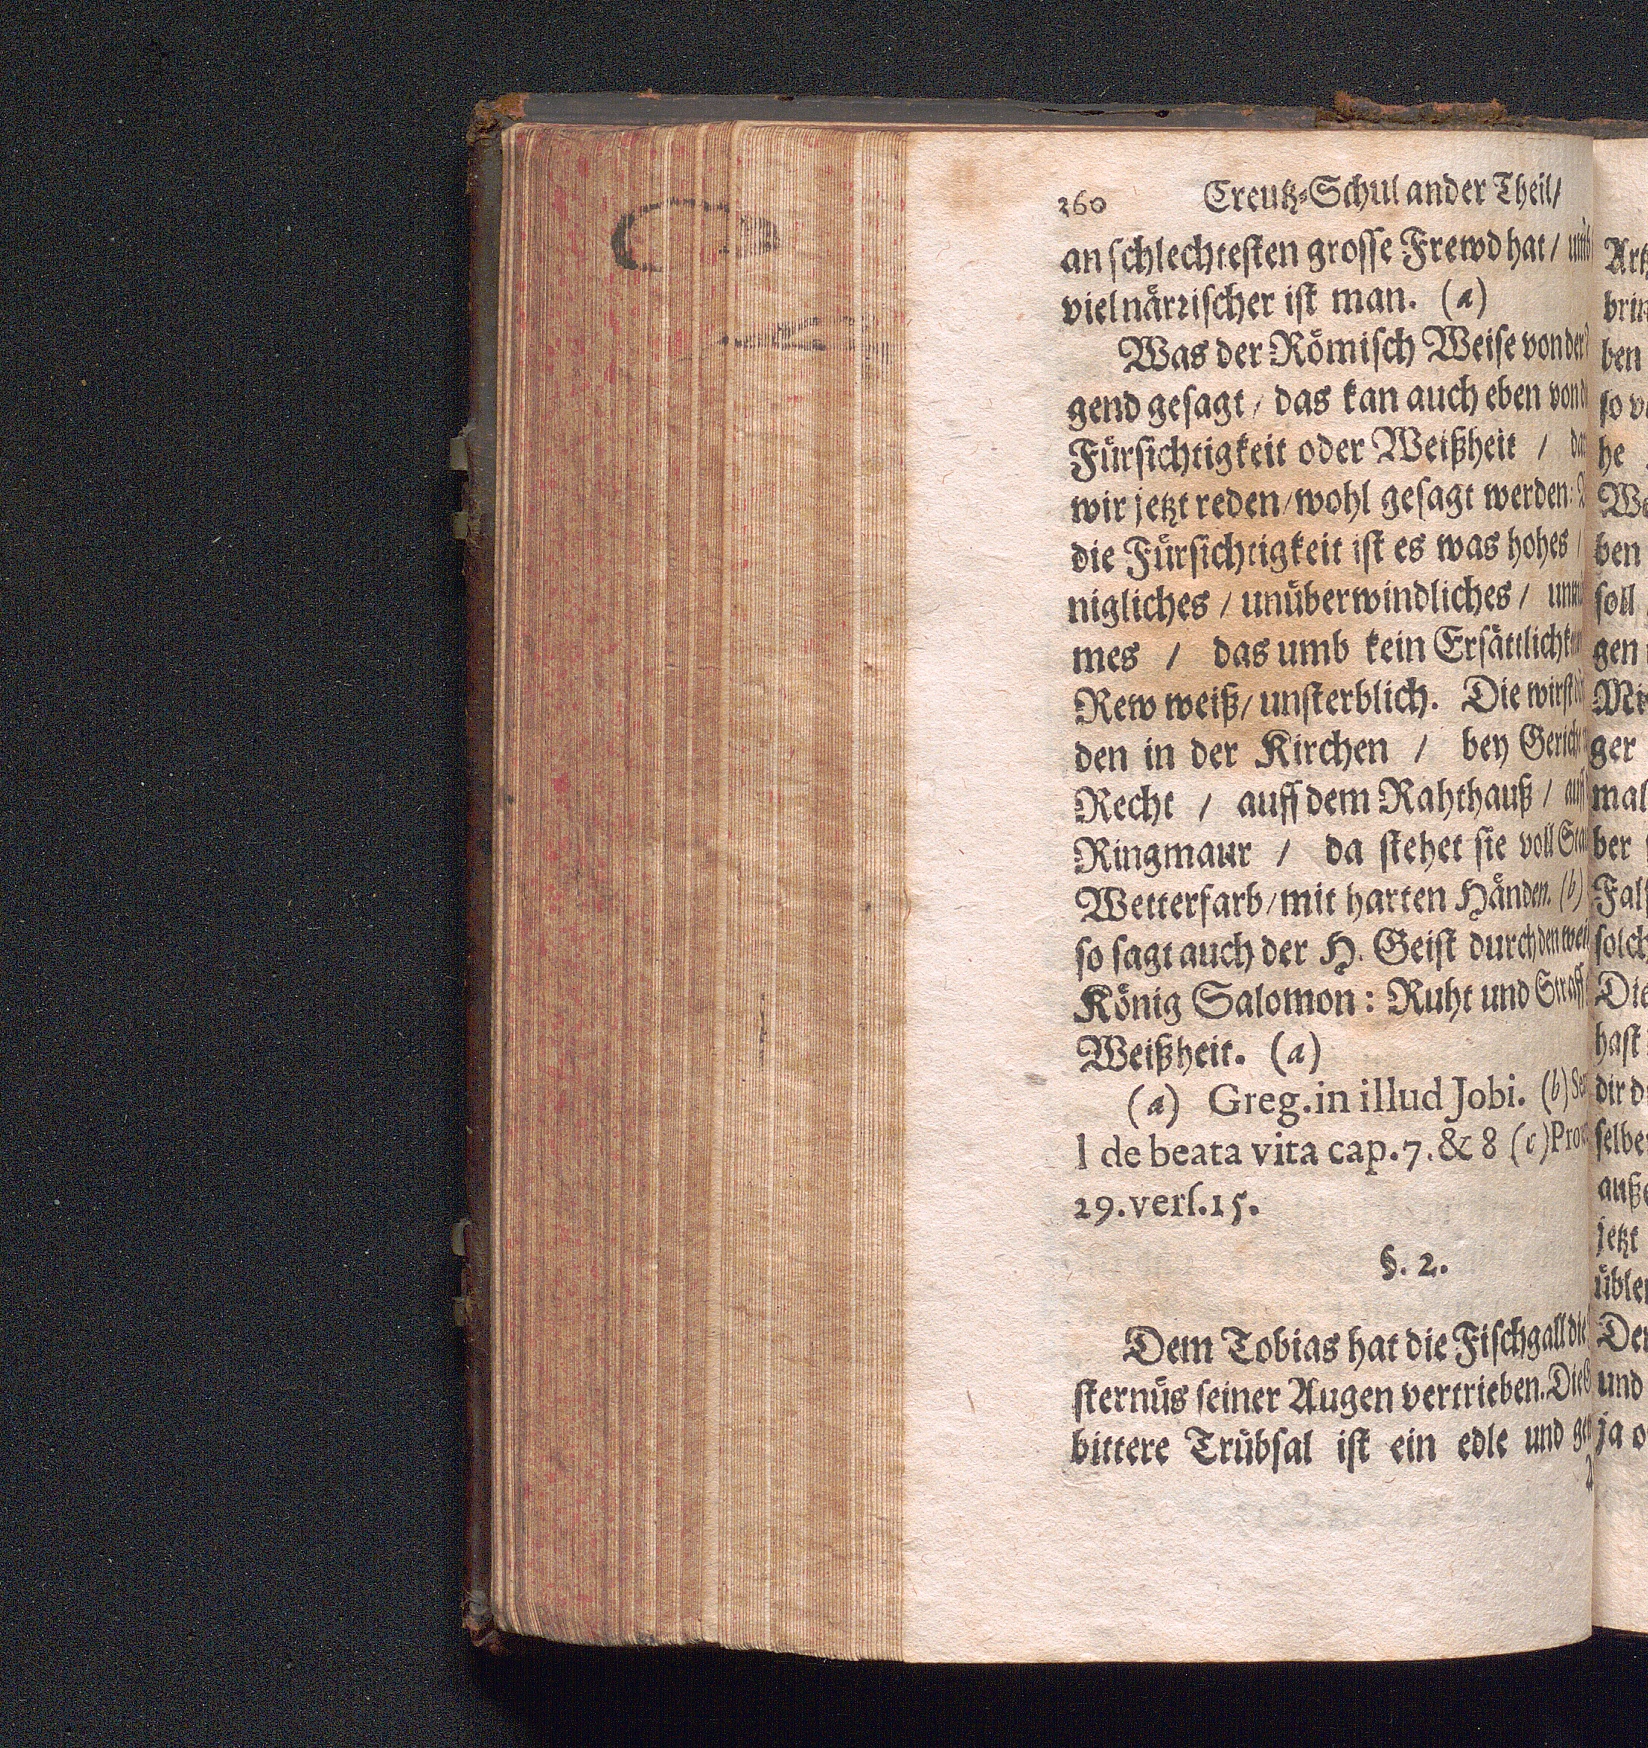 260 Creutz-Schul ander Theil/
an schlechtesten grosse Frewd hat / umb
viel närrischer ist man. (a)
Was der Römisch Weise von der
gend gesagt / das kan auch eben von
Fürsichtigkeit oder Weißheit /
wir jetzt reden / wohl gesagt werden:
die Fürsichtigkeit ist es was hohes /
nigliches / unüberwindliches /
mes / das umb kein
Rew weiß / unsterblich. Die wirst
den in der Kirchen / bey
Recht / auff dem Rahthauß /
Ringmaur / da stehet sie voll
Wetterfarb / mit harten Händen. (b)
so sagt auch der H. Geist durch den
König Salomon: Ruht und
Weißheit. (a)
(a) Greg. in illud Jobi. (b)
l de beata vita cap. 7. & 8 (c)
29. vers. 15.
§. 2.
Dem Tobias hat die Fischgall die
sternüs seiner Augen vertrieben. Die
bittere Trübsal ist ein edle und
ben
so
he
ben
soll
gen
ger
ber
Die
hast
dir
jetzt
und
ja